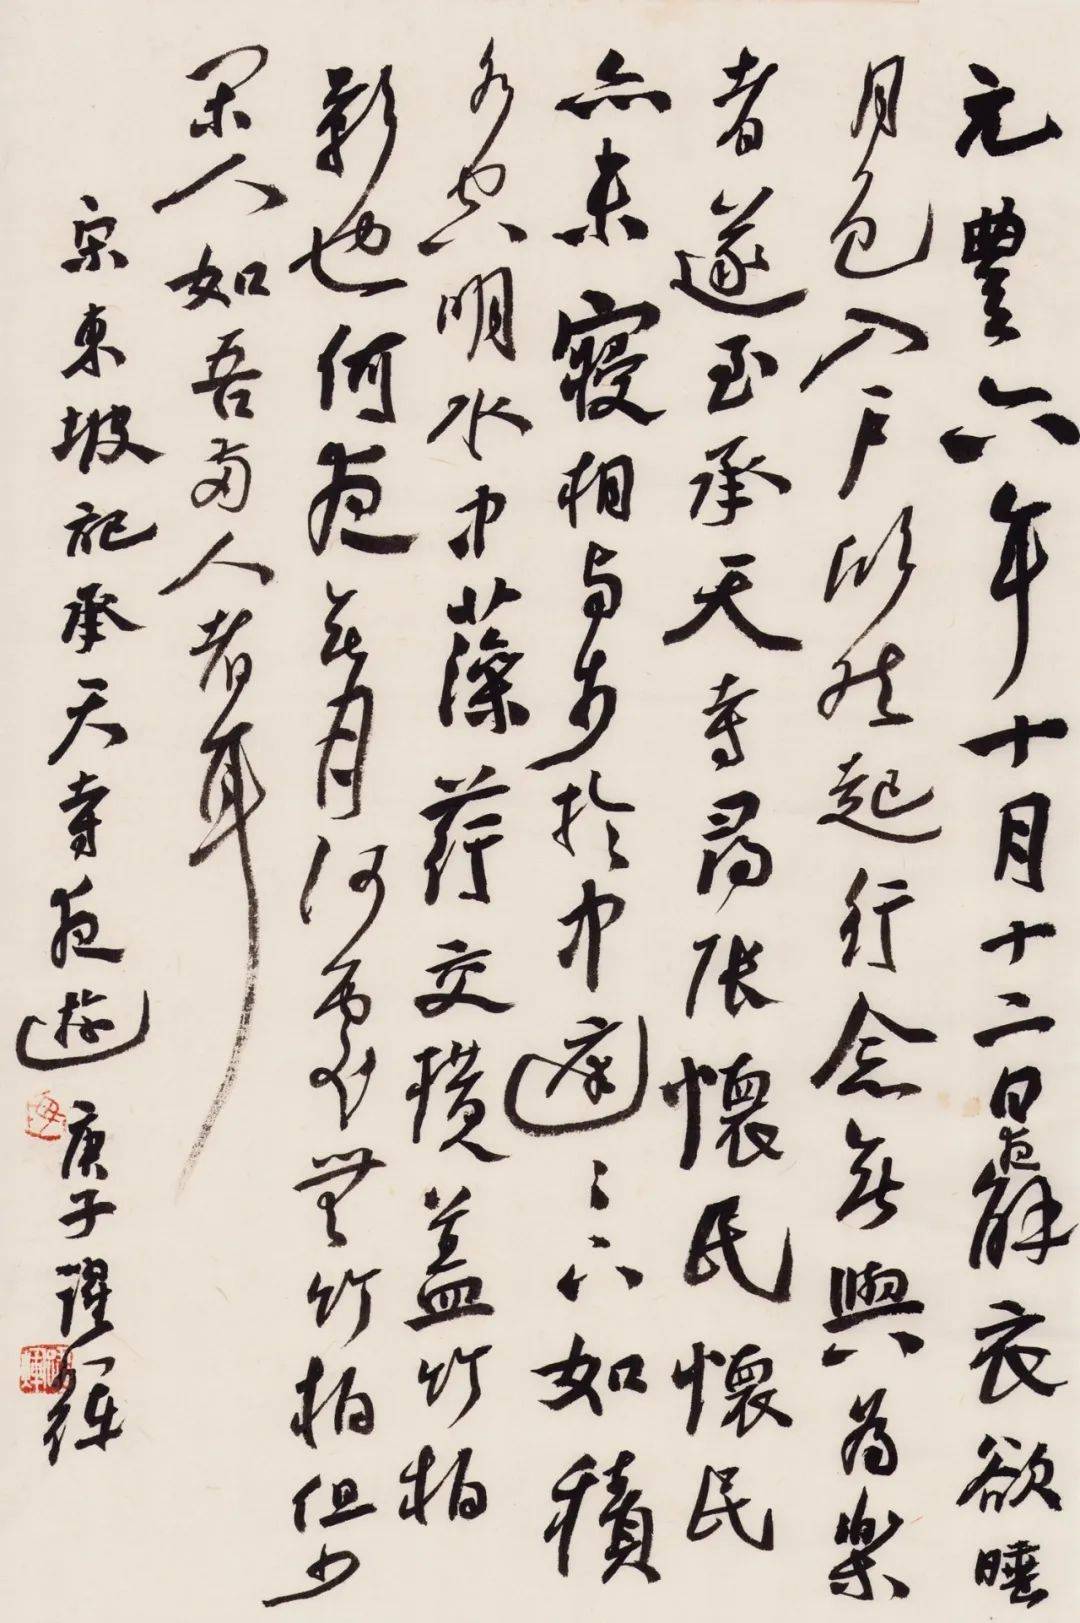 元豐六年十月十二日夜解衣欲睡
月色入戶欣然起行念無與為樂
者遂至承天寺尋張懷民懷民
亦未寢相與步於中庭〻下如積
水空明水中藻荇交橫蓋竹柏
影也何夜無月何處無竹柏但少
閑人如吾兩人者耳
宋東坡記承天寺夜遊 庚子